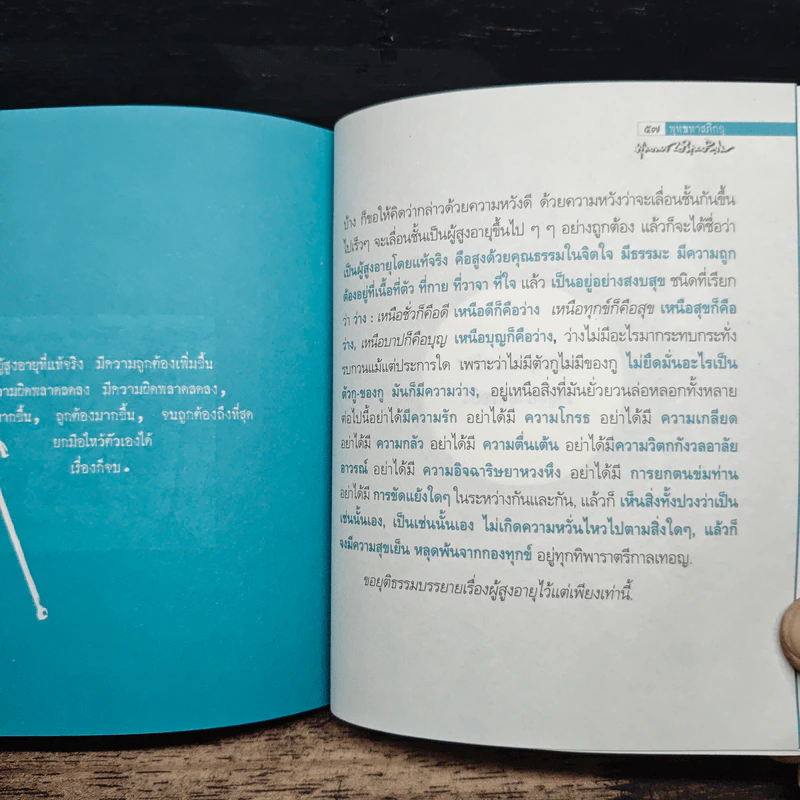 ผู้สูงอายุที่แท้จริง มีความถูกต้องเพิ่มขึ้น
ความผิดพลาดลดลง มีความผิดพลาดลดลง,
มากขึ้น, ถูกต้องมากขึ้น, จนถูกต้องถึงที่สุด
ยกมือไหว้ตัวเองได้
เรื่องก็จบ.
๕๗ พุทธทาสภิกขุ
บ้าง ก็ขอให้คิดว่ากล่าวด้วยความหวังดี ด้วยความหวังว่าจะเลื่อนชั้นกันขึ้น
ไปเร็วๆ จะเลื่อนชั้นเป็นผู้สูงอายุขึ้นไป ๆ ๆ อย่างถูกต้อง แล้วก็จะได้ชื่อว่า
เป็นผู้สูงอายุโดยแท้จริง คือสูงด้วยคุณธรรมในจิตใจ มีธรรมะ มีความถูก
ต้องอยู่ที่เนื้อที่ตัว ที่กาย ที่วาจา ที่ใจ แล้ว เป็นอยู่อย่างสงบสุข ชนิดที่เรียก
ว่า ว่าง : เหนือชั่วก็คือดี เหนือดีก็คือว่าง เหนือทุกข์ก็คือสุข เหนือสุขก็คือ
ว่าง, เหนือบาปก็คือบุญ เหนือบุญก็คือว่าง, ว่างไม่มีอะไรมากระทบกระทั่ง
รบกวนแม้แต่ประการใด เพราะว่าไม่มีตัวกูไม่มีของกู ไม่ยึดมั่นอะไรเป็น
ตัวกู-ของกู มันก็มีความว่าง, อยู่เหนือสิ่งที่มันยั่วยวนล่อหลอกทั้งหลาย
ต่อไปนี้อย่าได้มีความรัก อย่าได้มี ความโกรธ อย่าได้มี ความเกลียด
อย่าได้มี ความกลัว อย่าได้มี ความตื่นเต้น อย่าได้มีความวิตกกังวลอาลัย
อาวรณ์ อย่าได้มี ความอิจฉาริษยาหวงหึง อย่าได้มี การยกตนข่มท่าน
อย่าได้มี การขัดแย้งใดๆ ในระหว่างกันและกัน, แล้วก็ เห็นสิ่งทั้งปวงว่าเป็น
เช่นนั้นเอง, เป็นเช่นนั้นเอง ไม่เกิดความหวั่นไหวไปตามสิ่งใดๆ, แล้วก็
จงมีความสุขเย็น หลุดพ้นจากกองทุกข์ อยู่ทุกทิพาราตรีกาลเทอญ.
ขอยุติธรรมบรรยายเรื่องผู้สูงอายุไว้แต่เพียงเท่านี้.